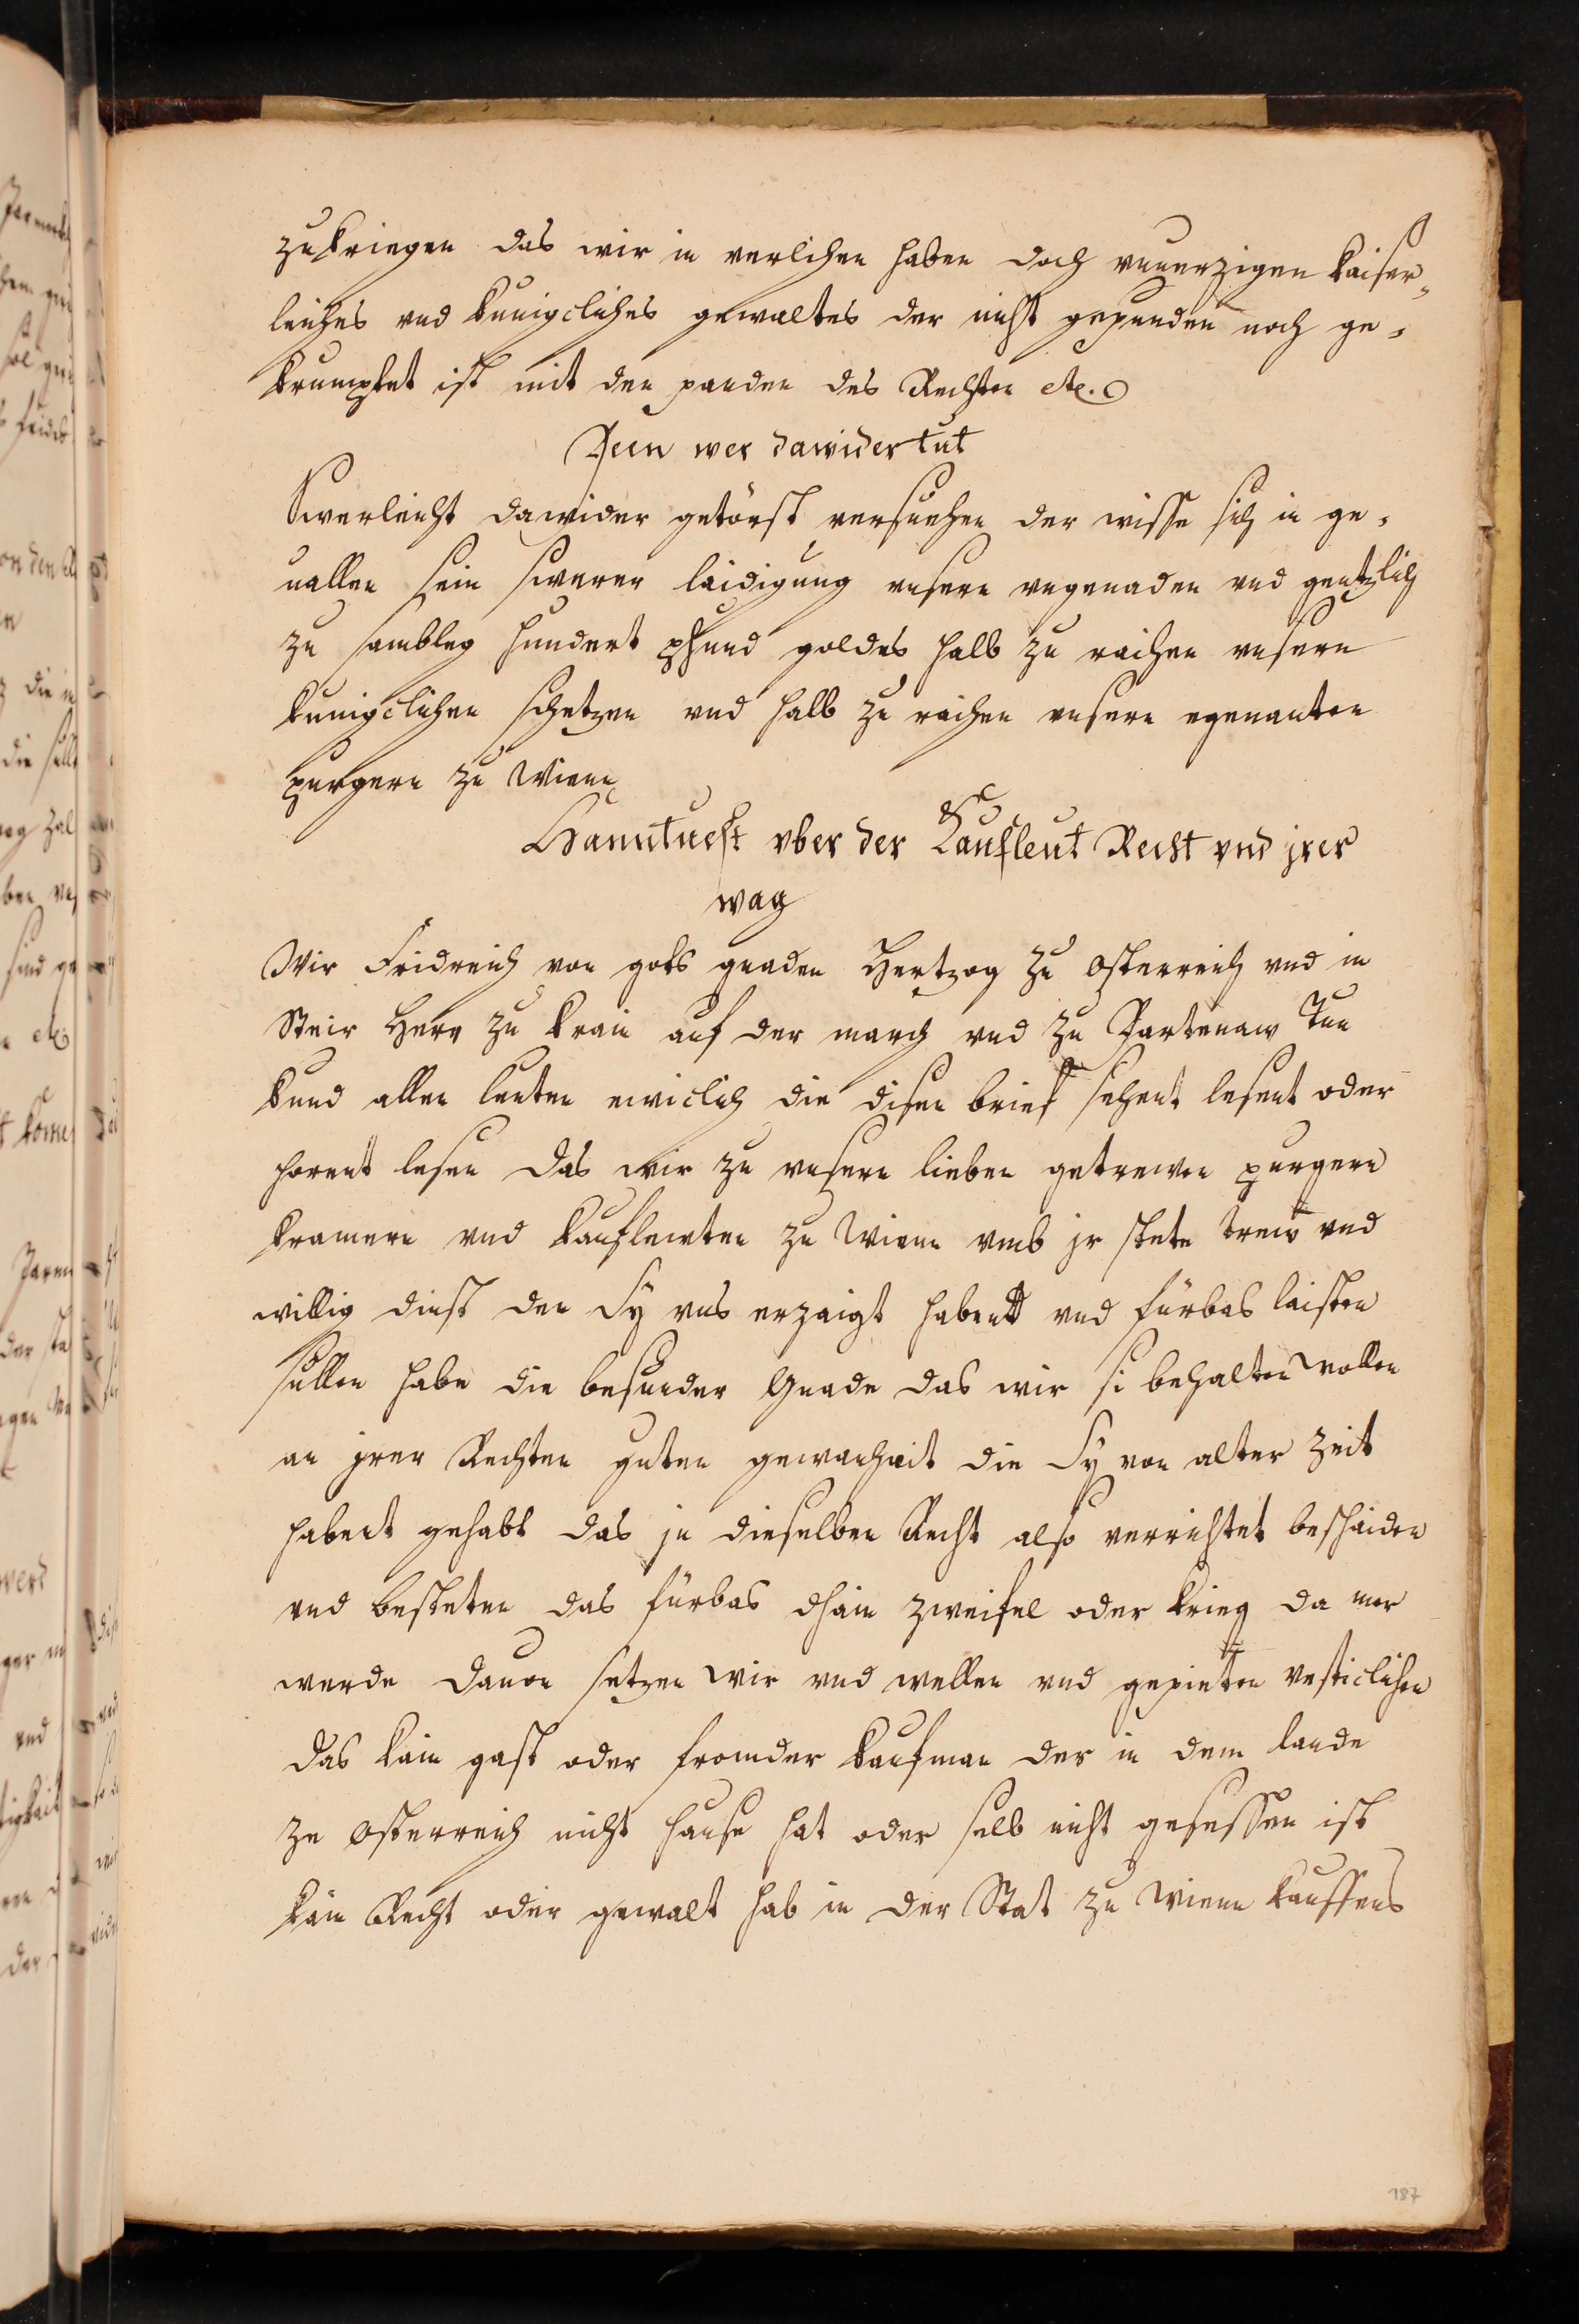 zukriegen das wir in verlihen haben doch vnuerzigen kaiser„
leiches vnd kunigcliches gewaltes der nicht gepunden noch ge„
krumphet ist mit den panden des Rechten etc.
Peen wer dawider tut
Swerleicht dawider getörst versuchen der wisse sich in ge„
uallen sein swerer laidigung vnsern vngenaden vnd gentzlich
zu sambleg hundert phund goldes halb zu raichen vnsern
kunigclichen schetzen vnd halb zu raichen vnsern egenanten
purgern zu Wienn
Hanntuest vber der Kaufleut Recht vnd jrer
wag
Wir Fridreich von gots gnaden Hertzog zu Osterreich vnd in
Steir Herr zu krain auf der march vnd zu Portenaw Tun
kund allen leuten ewiclich die disen brief sehent lesent oder
horent lesen das wir zu vnsern lieben getrewen purgern
kramern vnd kaufleuten zu Wienn vmb jr stete trew vnd
willig dinst den Sy vns erzaigt habent vnd fürbas laisten
sullen habe die besunder Gnade das wir si behalten wollen
an jrer Rechten guten gewonhait die Sy von alter zeit
habent gehabt das jn dieselben Recht also verrichtet beschaiden
vnd besteten das fürbas dhain zweifel oder krieg da mer
werde dauon setzen wir vnd wellen vnd gepieten vesticlichen
das kain gast oder fromder kaufman der in dem lande
ze Osterreich nicht hause hat oder selb nicht gesessen ist
kain Recht oder gewalt hab in der Stat zu Wienn kauffens
187